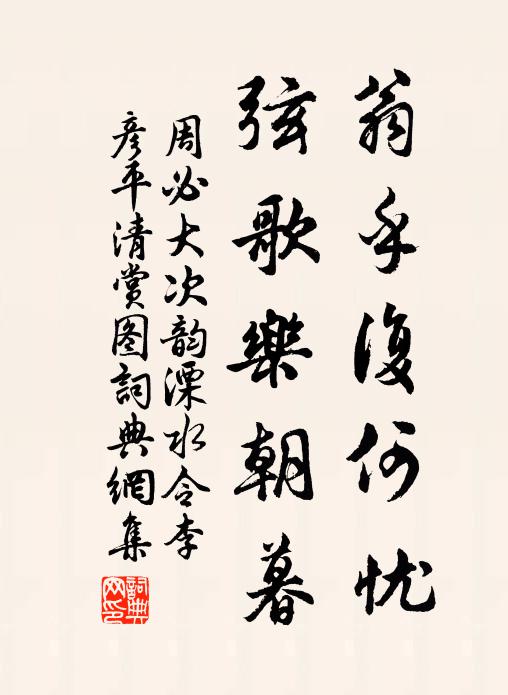 翁乎復何忧
弦歌樂朝暮
周必大次韵溧水令李
彦平清赏图詞典網集
詞典网印